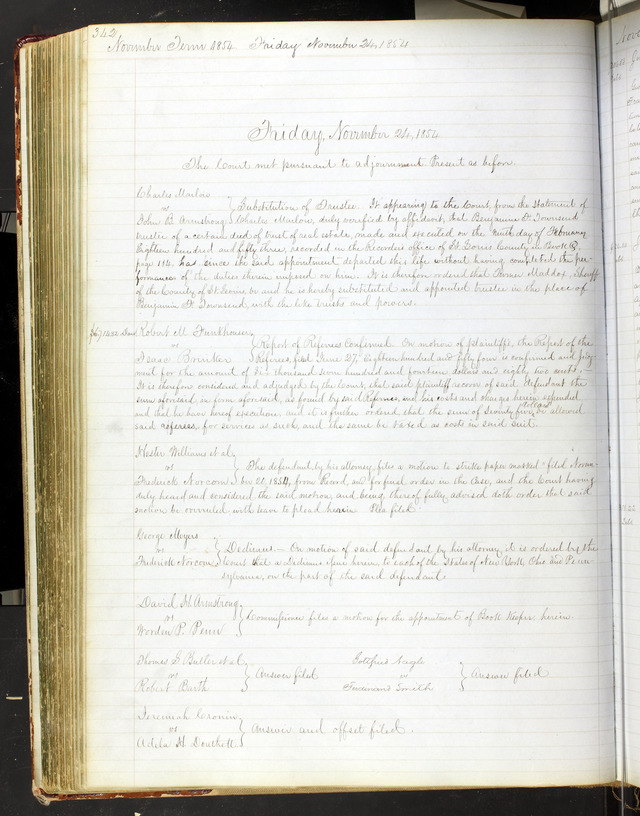 342
November Term 1854 Friday November 24, 1854
Friday, November 24, 1854
The Court met pursuant to adjournment Present as before.
Charles Marlow
vs
John B. Armstrong
Substitution of Trustee. It appearing to the Court, from the statement of
Charles Marlow, duly verified by affidavit, that Benjamin F. Townsend
trustee of a certain deed of trust of real estate, made and executed on the Ninth day of February
Eighteen hundred and fifty three, recorded in the Recorders office of St Louis County in Book
page 114, has since the said appointment departed this life without having completed the per-
formances of the duties therein imposed on him. It is therefore ordered that Maddox, Sheriff
of the County of St Louis, be and he is hereby substituted and appointed trustee in the place of
Benjamin F. Townsend, with the like trusts and powers.
Robert M. Funkhouser
vs
Isaac
Report of Referees Confirmed. On motion of plaintiffs, the Report of the
Referees, filed June 27, Eighteen hundred and fifty four is confirmed and judg-
ment for the amount of Six thousand seven hundred and fourteen dollars and eighty two cents.
It is therefore considered and adjudged by the Court, that said plaintiff recover of said defendant the
sum aforesaid, in form aforesaid, as found by said Referees, and his costs and charges herein expended
and that he have hereof execution, and it is further ordered that the sum of Seventy five dollars be allowed
said referees, for services as such, and the same be taxed as costs in said suit.
Hester Williams et al
vs
Frederick Norcom
The defendant by his attorney files a motion to strike paper marked "filed Novem-
ber 21, 1854, from Record and for final order in the Case, and the Court having
duly heard and considered the said motion and being thereof fully advised doth order that said
motion be overruled with leave to plead herein. Plea filed
George Meyers
vs
Frederick Norcom
Dedimus — On motion of said defendant by his attorney, it is ordered by the
Court that a Dedimus issue herein to each of the States of New York, Ohio and Penn-
sylvania, on the part of the said defendant.
David H. Armstrong
vs
Worden P. Penn
Commissioner files a motion for the appointment of Book Keeper herein.
Thomas S. Butler et al
vs
Robert Barth
Answer filed
Gottfried Nagle
vs
Smith
Answer filed
Jeremiah Cronin
vs
Adela H. Douthitt
Answer and offset filed.